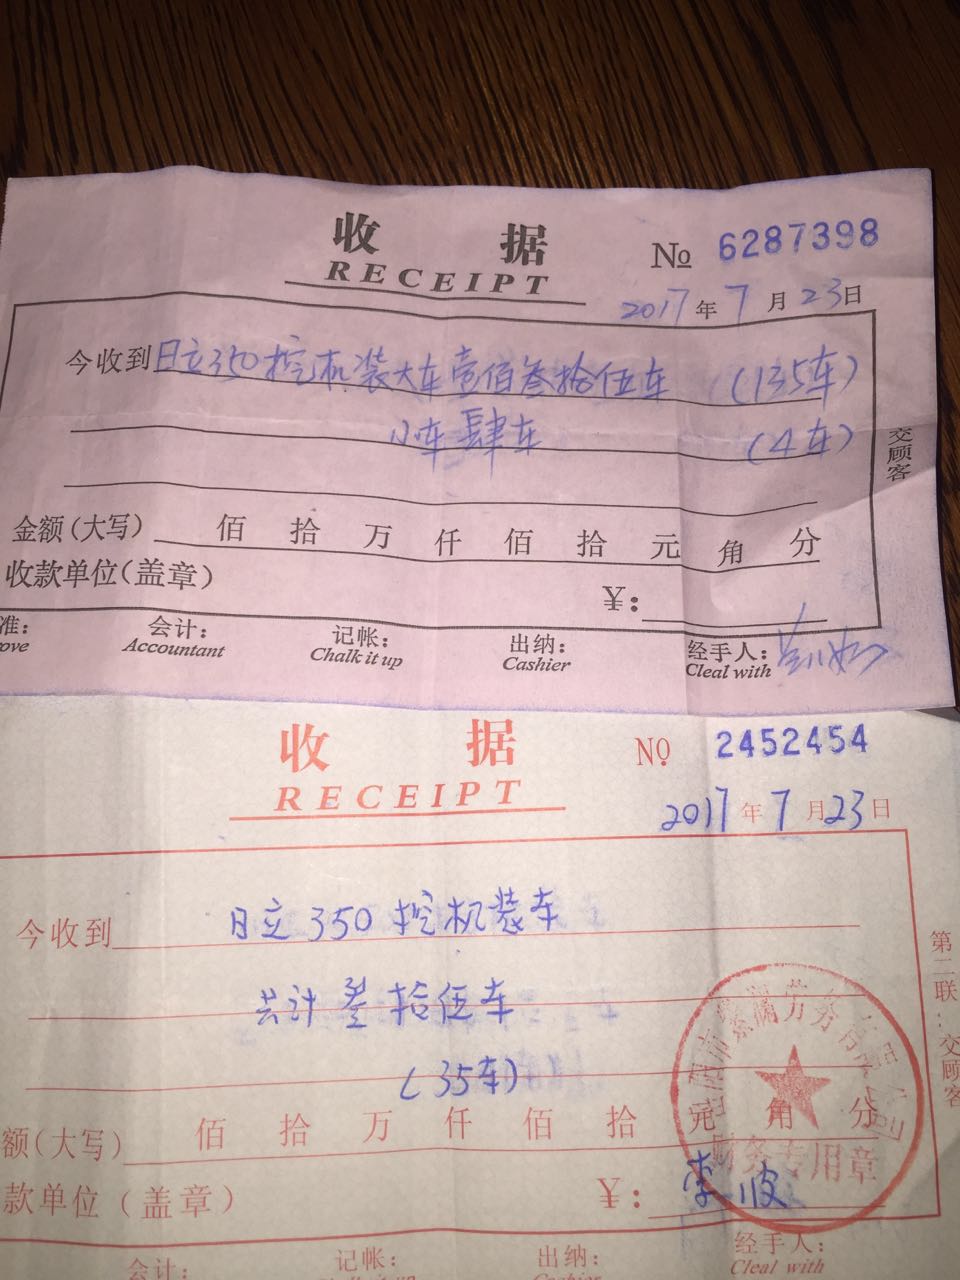 收 据
RECEIPT
№ 6287398
2017年7月23日
今收到日立350挖机装大车壹佰叁拾伍车 (135车)
小车肆车 (4车)
交顾客
金额(大写) 佰 拾 万 仟 佰 拾 元 角 分
收款单位(盖章) ¥:
准: 会计: 记帐: 出纳: 经手人:
ove Accountant Chalk it up Cashier Cleal with
收 据
RECEIPT
№ 2452454
2017年7月23日
今收到 日立350挖机装车
共计叁拾伍车
(35车)
第二联:交顾客
额(大写) 佰 拾 万 仟 佰 拾 元 角 分
财务专用章
款单位(盖章) ¥: 李波
会计: 记帐: 出纳: 经手人:
Chalk it up Cashier Cleal with